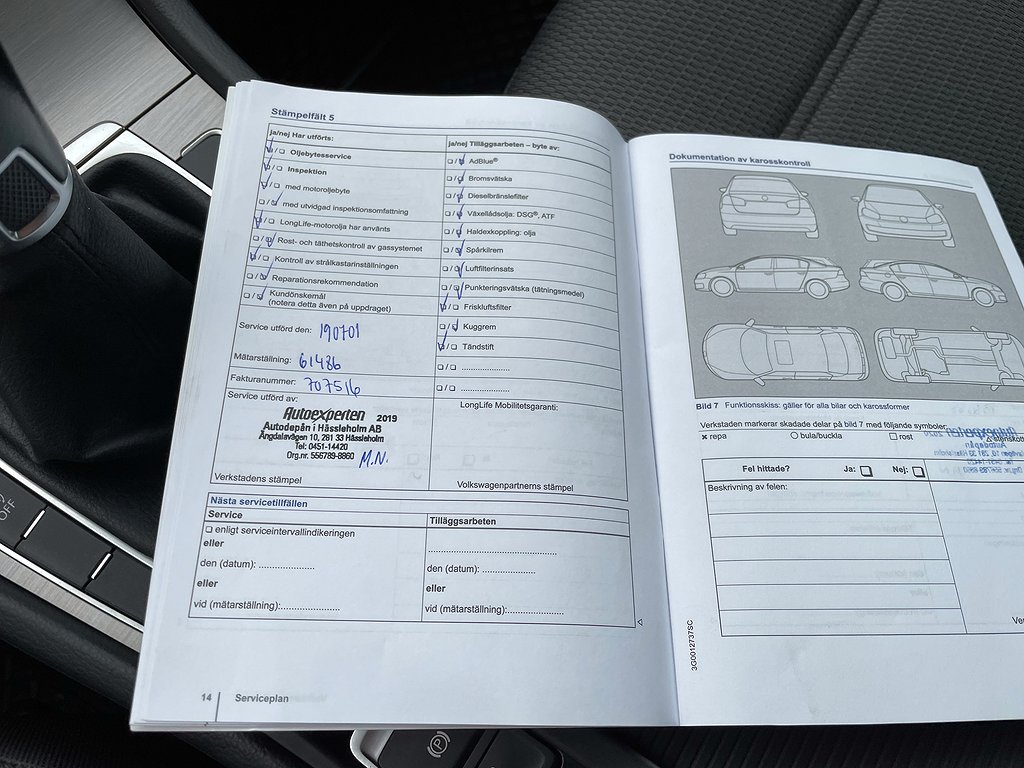 Stämpelfält 5
ja/nej Har utförts:
☐/☐ Oljebytesservice
☐/☐ Inspektion
☐/☐ med motoroljebyte
☐/☐ med utvidgad inspektionsomfattning
☐/☐ LongLife-motorolja har använts
☐/☐ Rost- och täthetskontroll av gassystemet
☐/☐ Kontroll av strålkastarinställningen
☐/☐ Reparationsrekommendation
☐/☐ Kundönskemål
(notera detta även på uppdraget)
Service utförd den: 190701
Mätarställning: 61486
Fakturanummer: 707516
Service utförd av:
Autoexperten 2019
Autodepån i Hässleholm AB
Ängdalavägen 10, 281 33 Hässleholm
Tel: 0451-14420
Org.nr. 556789-8860 M.N.
Verkstadens stämpel
ja/nej Tilläggsarbeten – byte av:
☐/☐ AdBlue®
☐/☐ Bromsvätska
☐/☐ Dieselbränslefilter
☐/☐ Växellådsolja: DSG®, ATF
☐/☐ Haldexkoppling: olja
☐/☐ Spårkilrem
☐/☐ Luftfilterinsats
☐/☐ Punkteringsvätska (tätningsmedel)
☐/☐ Friskluftsfilter
☐/☐ Kuggrem
☐/☐ Tändstift
☐/☐ ....................
☐/☐ ....................
LongLife Mobilitetsgaranti:
Volkswagenpartnerns stämpel
Nästa servicetillfällen
Service
☐ enligt serviceintervallindikeringen
eller
den (datum): ....................
eller
vid (mätarställning):....................
Tilläggsarbeten
..............................................
den (datum): ...................
eller
vid (mätarställning):...........................
14 Serviceplan
Dokumentation av karosskontroll
Bild 7 Funktionsskiss: gäller för alla bilar och karossformer
Verkstaden markerar skadade delar på bild 7 med följande symboler:
× repa ○ bula/buckla ☐ rost
Fel hittade? Ja: ☐ Nej: ☐
Beskrivning av felen:
3G0012737SC
OFF
P